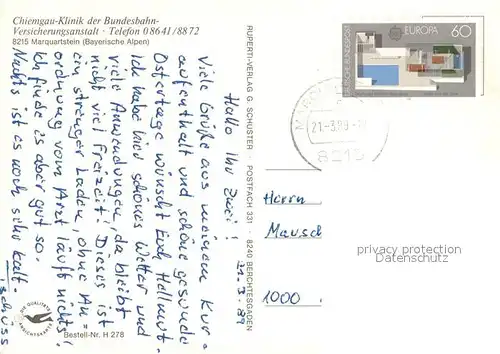 Chiemgau-Klinik der Bundesbahn-
Versicherungsanstalt · Telefon 08641/8872
8215 Marquartstein (Bayerische Alpen)
Hallo Ihr Zwei!
22.3.89
Viele Grüße aus meinem Kur-
aufenthalt und schöne gesunde
Ostertage wünscht Euch Hellmut.
Ich habe hier schönes Wetter und
viele Anwendungen, da bleibt
nicht viel Freizeit! Dieses ist
ein strenger Laden, ohne An-
ordnung vom Arzt läuft nichts!
Ich finde es aber gut so.
Nachts ist es noch sehr kalt.
Tschüss
DIE QUALITÄTS
ANSICHTSKARTE
Bestell-Nr. H 278
RUPERTI-VERLAG G. SCHUSTER · POSTFACH 331 · 8240 BERCHTESGADEN
DEUTSCHE BUNDESPOST
EUROPA 60
21.-3.89
8215
Herrn
Mausch
1000
privacy protection
Datenschutz